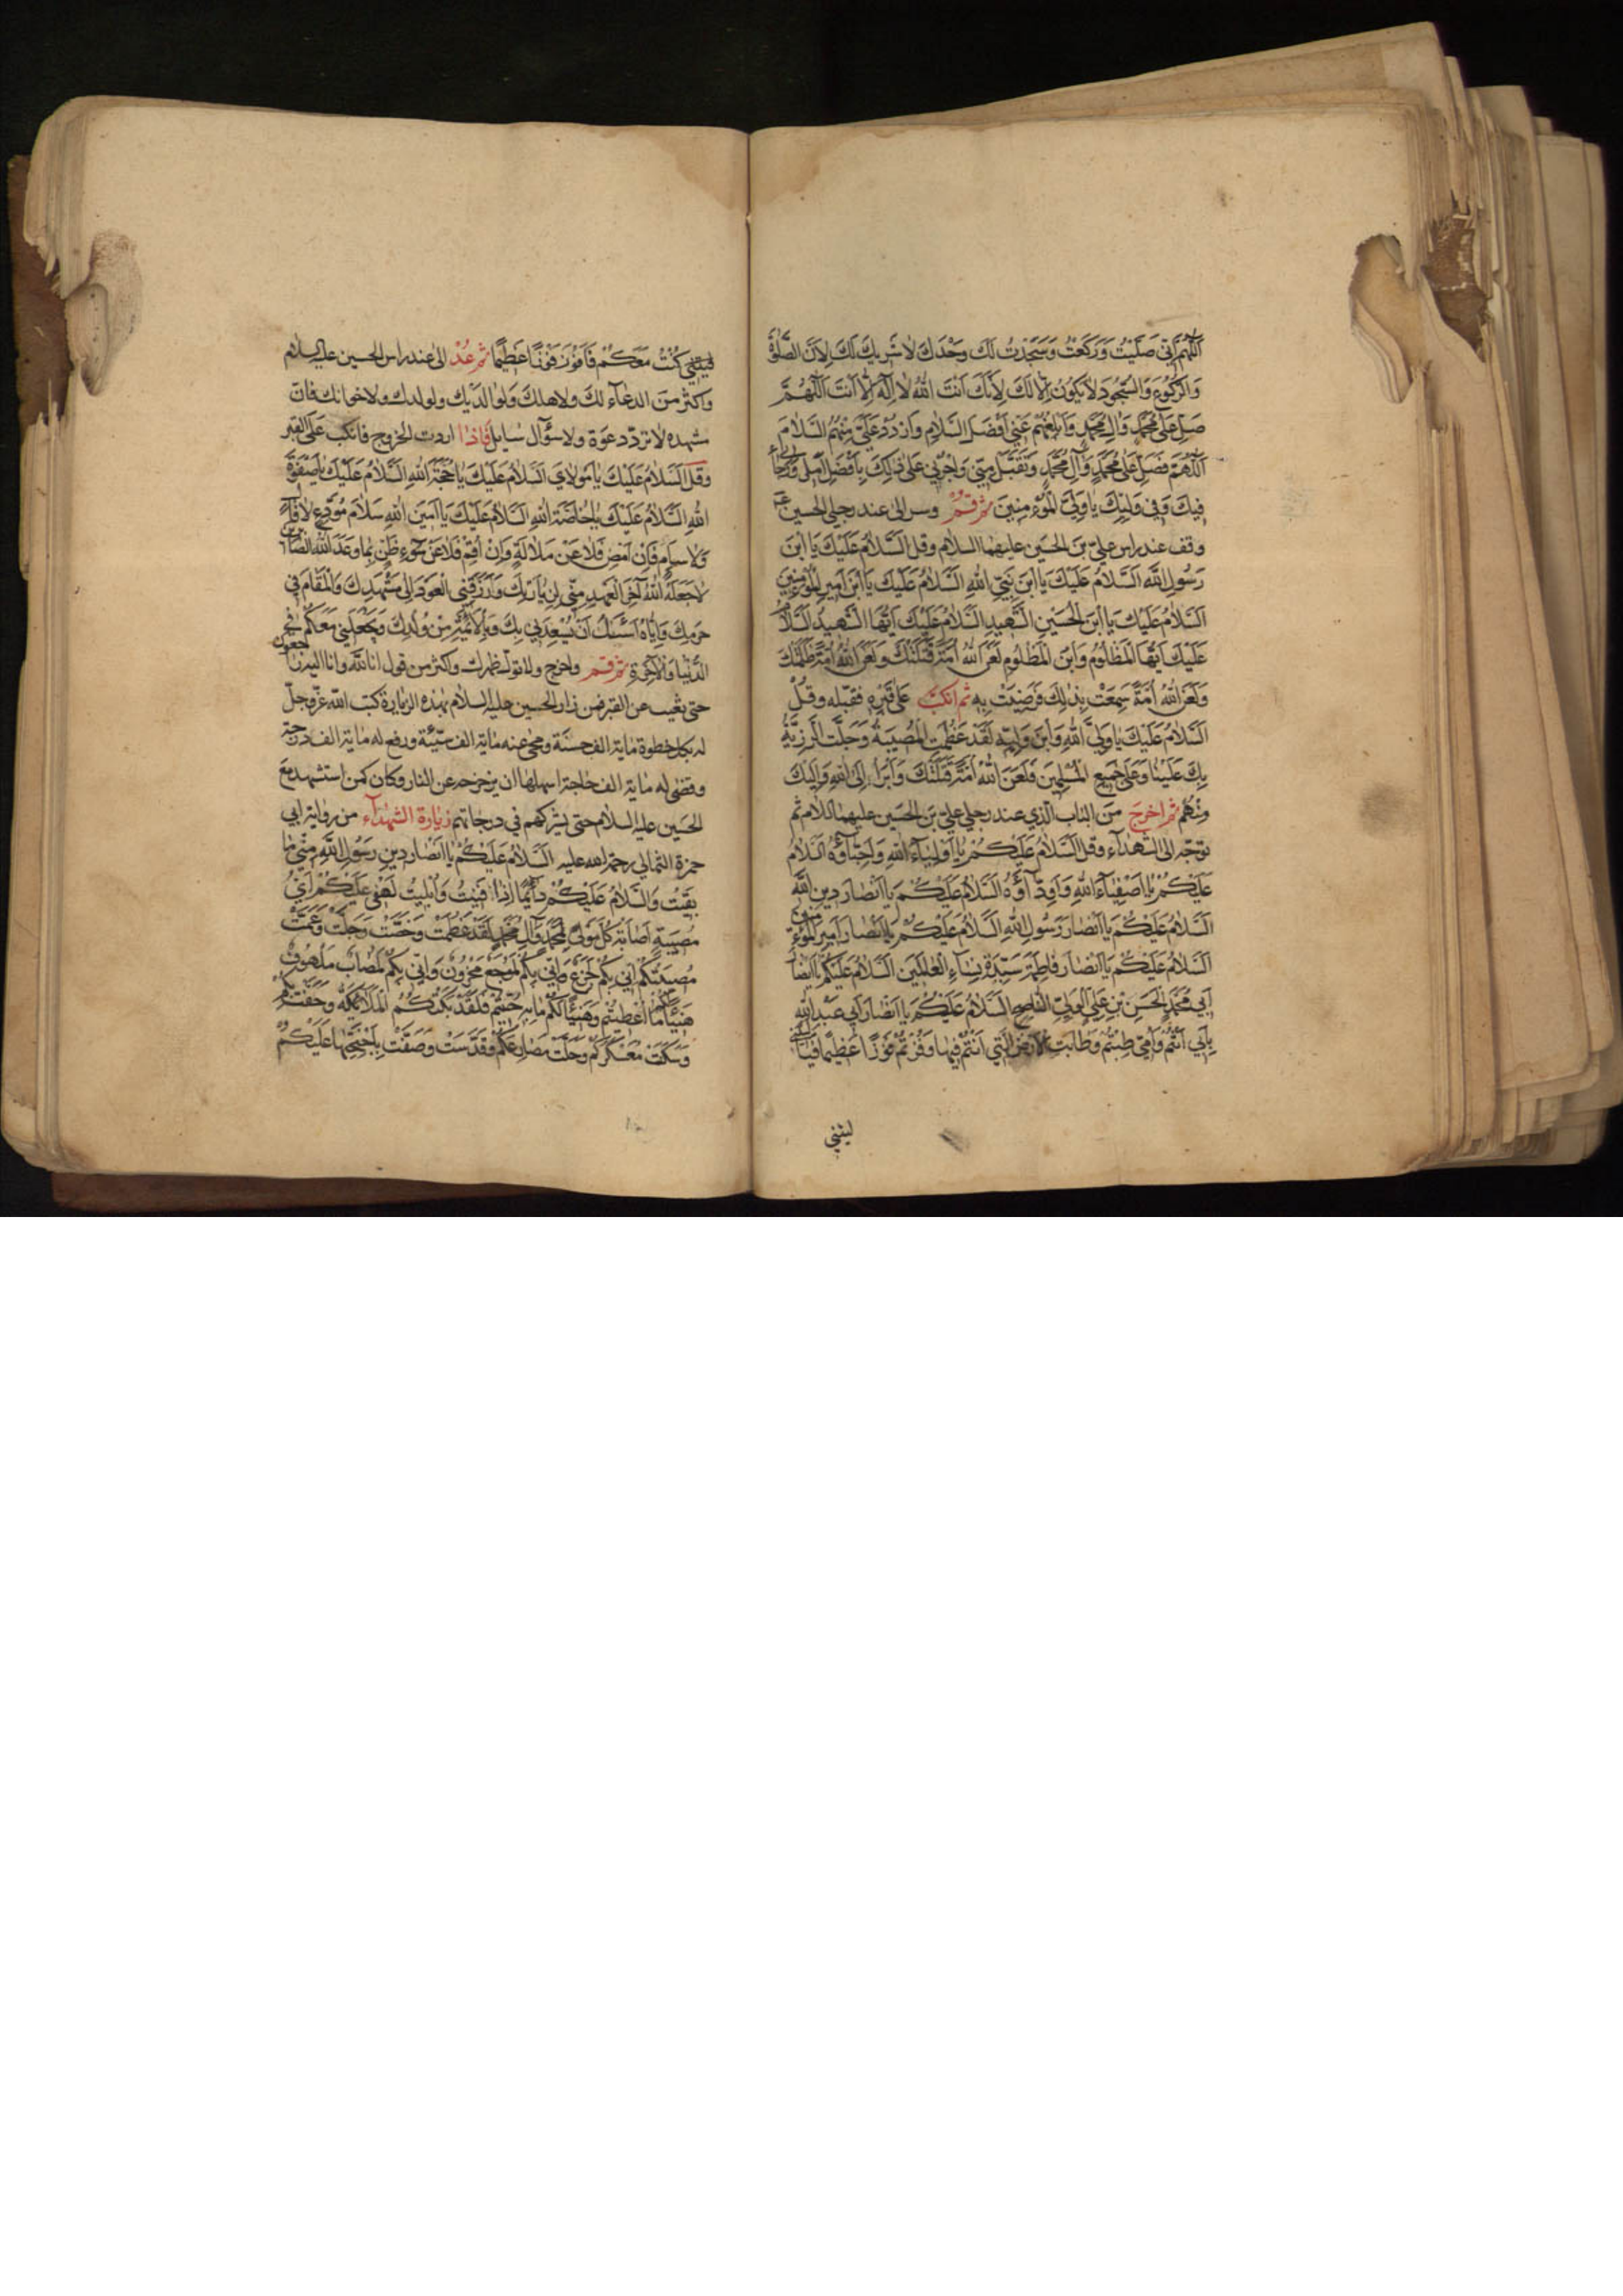 اَللّٰهُمَّ اِنّى صَلَّيْتُ وَرَكَعْتُ وَسَجَدْتُ لَكَ وَحْدَكَ لاٰ شَرِيكَ لَكَ لِاَنَّ الصَّلٰوةَ
وَالرُّكُوعَ وَالسُّجُودَ لاٰ يَكُونُ اِلّاٰ لَكَ لِاَنَّكَ اَنْتَ اللهُ لاٰ اِلٰهَ اِلّاٰ اَنْتَ اَللّٰهُمَّ
صَلِّ عَلىٰ مُحَمَّدٍ وَاٰلِ مُحَمَّدٍ وَاَبْلِغْهُمْ عَنّى اَفْضَلَ السَّلاٰمِ وَارْدُدْ عَلَىَّ مِنْهُمُ السَّلاٰمَ
اَللّٰهُمَّ فَصَلِّ عَلىٰ مُحَمَّدٍ وَآلِ مُحَمَّدٍ وَتَقَبَّلْ مِنّى وَاجْزِنى عَلىٰ ذٰلِكَ بِاَفْضَلِ اَمَلى وَرَجٰائى
فيكَ وَفى وَلِيِّكَ يٰا وَلِىَّ الْمُؤْمِنينَ ثم قم وسر الى عند رجلي الحسين ع
وقف عند راس علىّ بن الحسين عليهما السلام وقل اَلسَّلاٰمُ عَلَيْكَ يَا ابْنَ
رَسُولِ اللهِ اَلسَّلاٰمُ عَلَيْكَ يَا ابْنَ نَبِىِّ اللهِ اَلسَّلاٰمُ عَلَيْكَ يَا ابْنَ اَميرِ الْمُؤْمِنينَ
اَلسَّلاٰمُ عَلَيْكَ يَا ابْنَ الْحُسَيْنِ الشَّهيدِ اَلسَّلاٰمُ عَلَيْكَ اَيُّهَا الشَّهيدُ اَلسَّلاٰمُ
عَلَيْكَ اَيُّهَا الْمَظْلُومُ وَابْنَ الْمَظْلُومِ لَعَنَ اللهُ اُمَّةً قَتَلَتْكَ وَلَعَنَ اللهُ اُمَّةً ظَلَمَتْكَ
وَلَعَنَ اللهُ اُمَّةً سَمِعَتْ بِذٰلِكَ فَرَضِيَتْ بِهِ ثم انكبّ على قبره فقبّله وقل
اَلسَّلاٰمُ عَلَيْكَ يٰا وَلِىَّ اللهِ وَابْنَ وَلِيِّهِ لَقَدْ عَظُمَتِ الْمُصيبَةُ وَجَلَّتِ الرَّزِيَّةُ
بِكَ عَلَيْنٰا وَعَلىٰ جَميعِ الْمُسْلِمينَ فَلَعَنَ اللهُ اُمَّةً قَتَلَتْكَ وَاَبْرَأُ اِلَى اللهِ وَاِلَيْكَ
مِنْهُمْ ثم اخرج من الباب الّذي عند رجلي علىّ بن الحسين عليهما السلام ثم
توجّه الى الشهداء وقل اَلسَّلاٰمُ عَلَيْكُمْ يٰا اَوْلِيٰاءَ اللهِ وَاَحِبّٰاؤُهُ اَلسَّلاٰمُ
عَلَيْكُمْ يٰا اَصْفِيٰاءَ اللهِ وَاَوِدّٰاؤُهُ اَلسَّلاٰمُ عَلَيْكُمْ يٰا اَنْصٰارَ دينِ اللهِ
اَلسَّلاٰمُ عَلَيْكُمْ يٰا اَنْصٰارَ رَسُولِ اللهِ اَلسَّلاٰمُ عَلَيْكُمْ يٰا اَنْصٰارَ اَميرِ الْمُؤْمِنينَ
اَلسَّلاٰمُ عَلَيْكُمْ يٰا اَنْصٰارَ فٰاطِمَةَ سَيِّدَةِ نِسٰاءِ الْعٰالَمينَ اَلسَّلاٰمُ عَلَيْكُمْ يٰا اَنْصٰارَ
اَبى مُحَمَّدٍ الْحَسَنِ بْنِ عَلِىٍّ الْوَلِىِّ النّٰاصِحِ اَلسَّلاٰمُ عَلَيْكُمْ يٰا اَنْصٰارَ اَبى عَبْدِ اللهِ
بِاَبى اَنْتُمْ وَاُمّى طِبْتُمْ وَطٰابَتِ الْاَرْضُ الَّتى اَنْتُمْ فيهٰا وَفُزْتُمْ فَوْزًا عَظيمًا فَيٰا لَيْتَنى
ليتني
كُنْتُ مَعَكُمْ فَاَفُوزَ فَوْزًا عَظيمًا ثم عد الى عند راس الحسين عليه السلام
واكثر من الدعاء لك ولاهلك ولوالديك ولولدك ولاخوانك فان
مشهده لا تردّ دعوة ولا سؤال سايل فاذا اردت الخروج فانكب على القبر
وقل اَلسَّلاٰمُ عَلَيْكَ يٰا مَوْلاٰىَ اَلسَّلاٰمُ عَلَيْكَ يٰا حُجَّةَ اللهِ اَلسَّلاٰمُ عَلَيْكَ يٰا صَفْوَةَ
اللهِ اَلسَّلاٰمُ عَلَيْكَ يٰا خٰاصَّةَ اللهِ اَلسَّلاٰمُ عَلَيْكَ يٰا اَمينَ اللهِ سَلاٰمَ مُوَدِّعٍ لاٰ قٰالٍ
وَلاٰ سَاٰمٍ فَاِنْ اَمْضِ فَلاٰ عَنْ مَلاٰلَةٍ وَاِنْ اُقِمْ فَلاٰ عَنْ سُوءِ ظَنٍّ بِمٰا وَعَدَ اللهُ الصّٰابِرينَ
لاٰ جَعَلَهُ اللهُ آخِرَ الْعَهْدِ مِنّى لِزِيٰارَتِكَ وَرَزَقَنِى الْعَوْدَ اِلىٰ مَشْهَدِكَ وَالْمَقٰامَ فى
حَرَمِكَ وَاِيّٰاهُ اَسْئَلُ اَنْ يُسْعِدَنى بِكَ وَبِالْاَئِمَّةِ مِنْ وُلْدِكَ وَيَجْعَلَنى مَعَكُمْ فِى
الدُّنْيٰا وَالْآخِرَةِ ثم قم واخرج ولا تولّ ظهرك واكثر من قول انا لله وانا اليه راجعون
حتى تغيب عن القبر فمن زار الحسين عليه السلام بهذه الزيارة كتب الله عزّ وجلّ
له بكل خطوة ماية الف حسنة ومحى عنه ماية الف سيّئة ورفع له ماية الف درجة
وقضى له ماية الف حاجة اسهلها ان يزحزحه عن النار وكان كمن استشهد مع
الحسين عليه السلام حتى يشركهم في درجاتهم زيارة الشهداء من رواية ابي
حمزة الثمالي رحمة الله عليه اَلسَّلاٰمُ عَلَيْكُمْ يٰا اَنْصٰارَ دينِ رَسُولِ اللهِ مِنّى مٰا
بَقيتُ وَالسَّلاٰمُ عَلَيْكُمْ دٰائِمًا اِذٰا فَنيتُ وَبَليتُ لَهْفى عَلَيْكُمْ اَىُّ
مُصيبَةٍ اَصٰابَتْ كُلَّ مَوْلىً لِمُحَمَّدٍ وَآلِ مُحَمَّدٍ لَقَدْ عَظُمَتْ وَخَصَّتْ وَجَلَّتْ وَعَمَّتْ
مُصيبَتُكُمْ اِنّى بِكُمْ لَجَزِعٌ وَاِنّى بِكُمْ لَمُوجَعٌ مَحْزُونٌ وَاِنّى بِكُمْ لَمُصٰابٌ مَلْهُوفٌ
هَنيئًا لَكُمْ مٰا اُعْطيتُمْ وَهَنيئًا لَكُمْ مٰا بِهِ حُيّيتُمْ فَلَقَدْ بَكَتْكُمُ الْمَلاٰئِكَةُ وَحَفَّتْ بِكُمْ
وَسَكَنَتْ مُعَسْكَرَكُمْ وَحَلَّتْ مَصٰارِعَكُمْ وَقَدَّسَتْ وَصَفَّتْ بِاَجْنِحَتِهٰا عَلَيْكُمْ